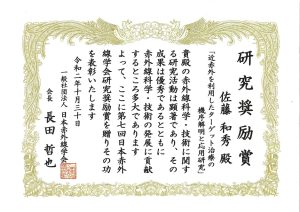 研究奨励賞
佐藤 和秀 殿
「近赤外を利用したターゲット治療の
機序解明と応用研究」
貴殿の赤外線科学・技術に関す
る研究活動は顕著であり、その
成果は優秀であるとともに
赤外線科学・技術の発展に貢献
するところ多大であります
よって、ここに第七回日本赤外
線学会研究奨励賞を贈りその功
を表彰いたします
令和二年十月三十日
一般社団法人 日本赤外線学会
会長 長田 哲也